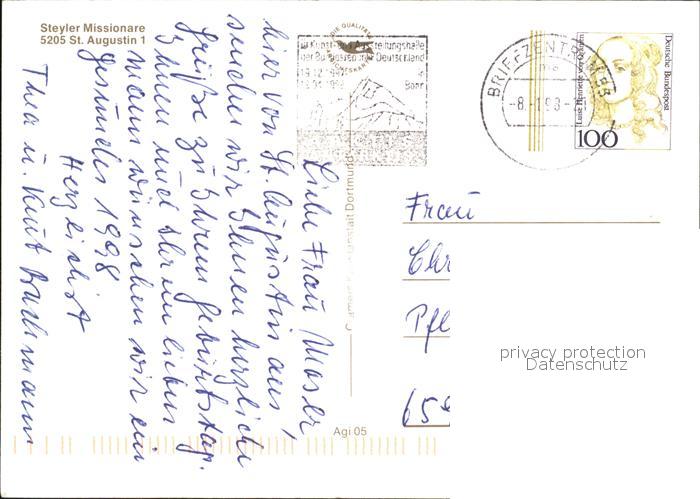 Steyler Missionare
5205 St. Augustin 1
Liebe Frau Moser,
hier von St. Augustin aus,
senden wir Ihnen herzliche
Grüße zu Ihrem Geburtstag.
Ihnen und Ihrem lieben
Mann wünschen wir ein
gesundes 1998
Herzlichst
Thea u. Kurt Bachmann
DIE QUALITÄT
Kunst- und Ausstellungshalle
der Bundesrepublik Deutschland
Bonn
BRIEFZENTRUM 53
-8.-1.98-
Luise Henriette von Oranien
Deutsche Bundespost
100
Kunstanstalt Dortmund
Agi 05
Frau
Chr
Pfl
65
privacy protection
Datenschutz